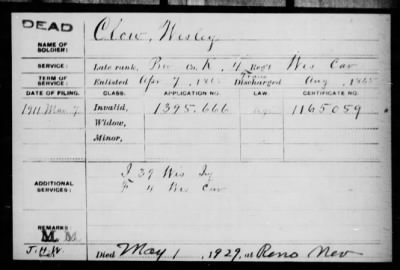 DEAD
NAME OF SOLDIER: Clow, Wesley
SERVICE: Late rank, Priv Co. K, 4 Reg't Wis Cav
TERM OF SERVICE: Enlisted Apr 7, 186 Discharged Aug , 1865
DATE OF FILING. CLASS. APPLICATION NO. LAW. CERTIFICATE NO.
1911 Mar. 7 Invalid, 1395.666 1165059
Widow,
Minor,
ADDITIONAL SERVICES: I 39 Wis Inf
F 4 Wis Cav
REMARKS:
M M
J.H.W. Died May 1, 1929, at Reno Nev